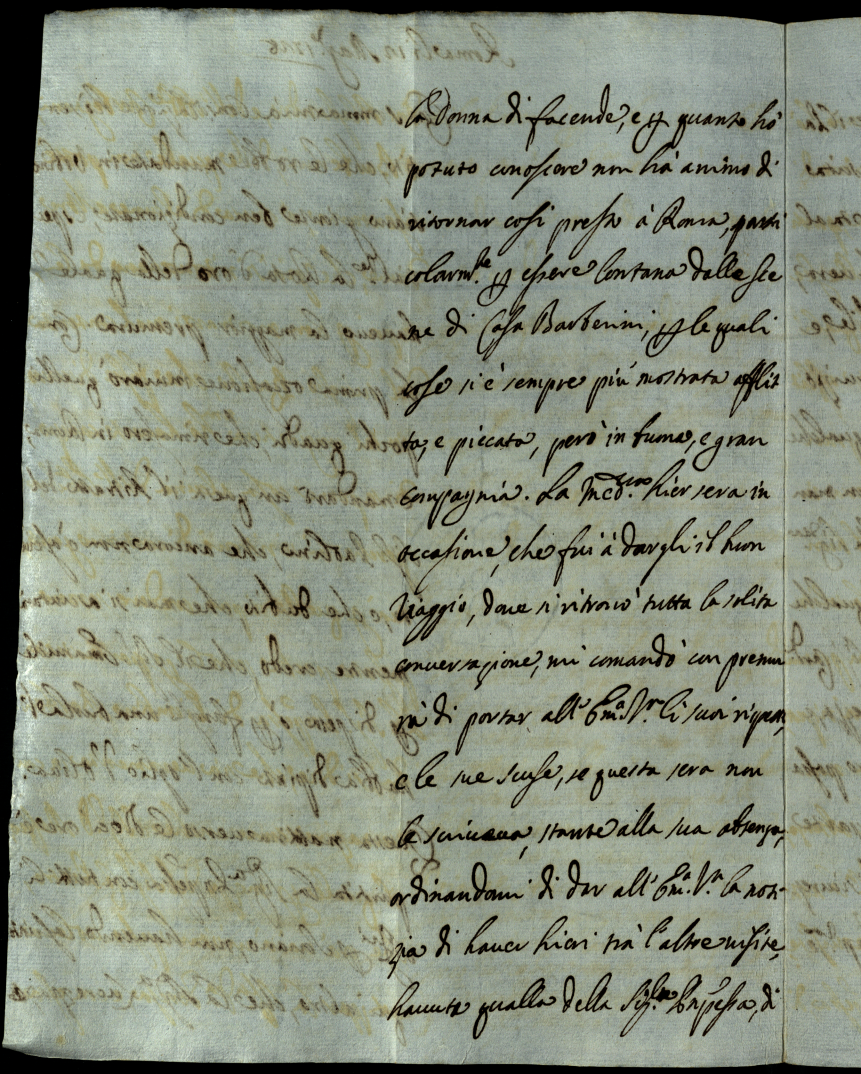 la Donna di facende, e p quanto hò
potuto conoscere non hà animo di
ritornar così presto à Roma, parti
colarm.te p essere lontana dalle sce
ne di Casa Barberini, p le quali
cose si è sempre più mostrata afflit
ta, e piccata, però in buona, e gran
compagnia. La med.ma hiersera in
occasione, che fui à dargli il buon
Viaggio, dove si ritrovò tutta la solita
conversazione, mi comandò con premu
ra di portar all' Em.a V.ra li suoi rispetti,
e le sue scuse, se questa sera non
le scriveva, stante alla sua absenza,
ordinandomi di dar all' Em.a V.ra la noti
zia di haver hieri trà l'altre visite,
havuta qualla della Sig.ra P̃npessa, di